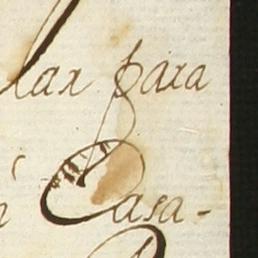 lar para
Casa-